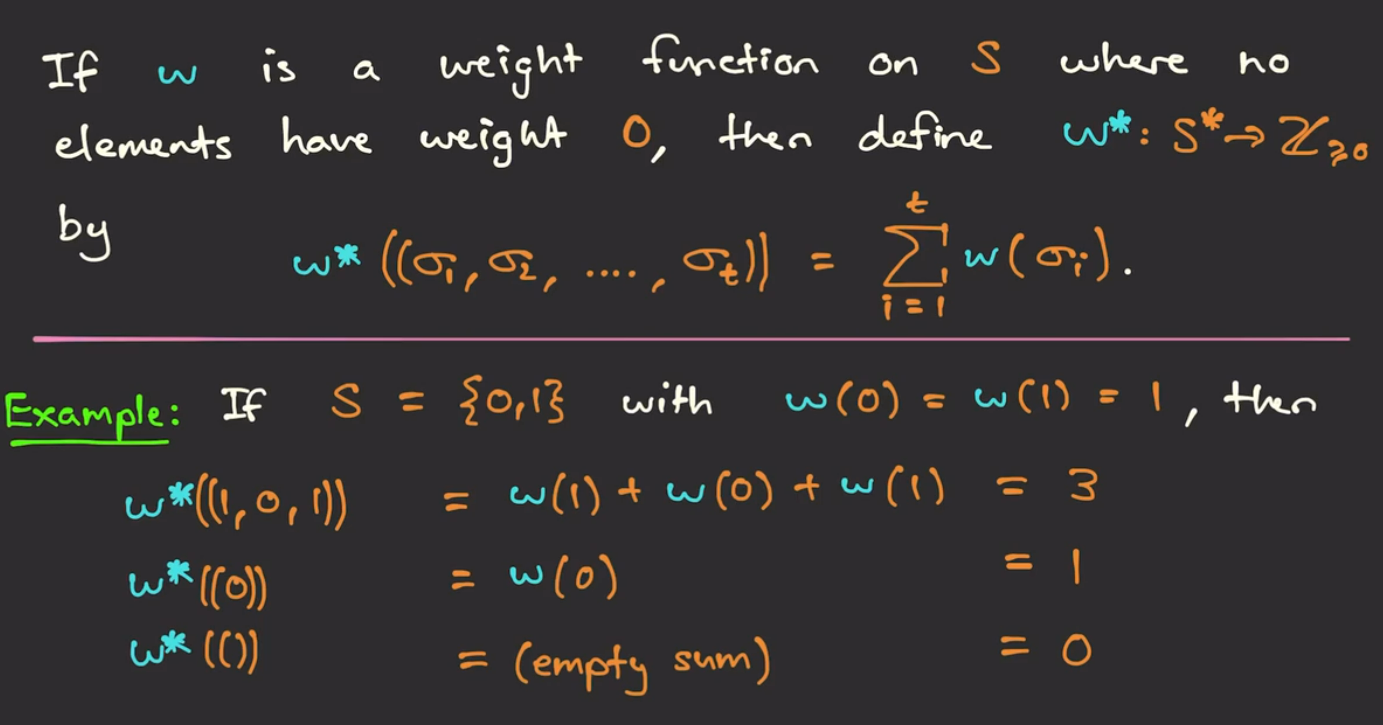 If w is a weight function on S where no
elements have weight 0, then define w*: S* → ℤ≥0
by
w*((σ₁, σ₂, ...., σₜ)) = ∑ᵢ₌₁ᵗ w(σᵢ).
Example: If S = {0,1} with w(0) = w(1) = 1, then
w*((1,0,1)) = w(1) + w(0) + w(1) = 3
w*((0)) = w(0) = 1
w*(()) = (empty sum) = 0